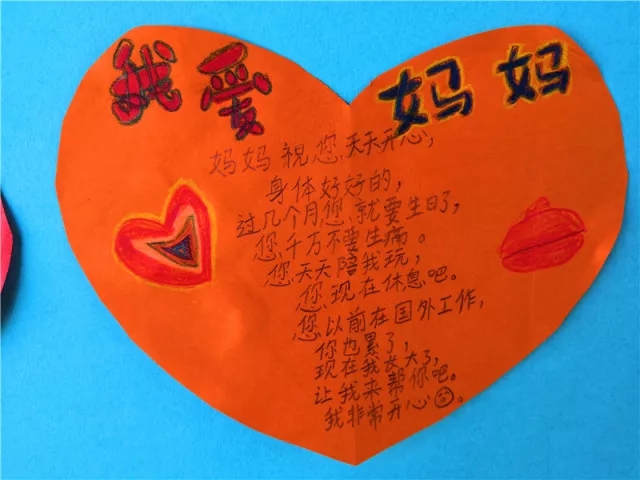 我爱妈妈
妈妈祝您天天开心，
身体好好的，
过几个月您就要生日了，
您千万不要生病。
您天天陪我玩，
您现在休息吧。
您以前在国外工作，
你也累了，
现在我长大了，
让我来帮你吧。
我非常开心。